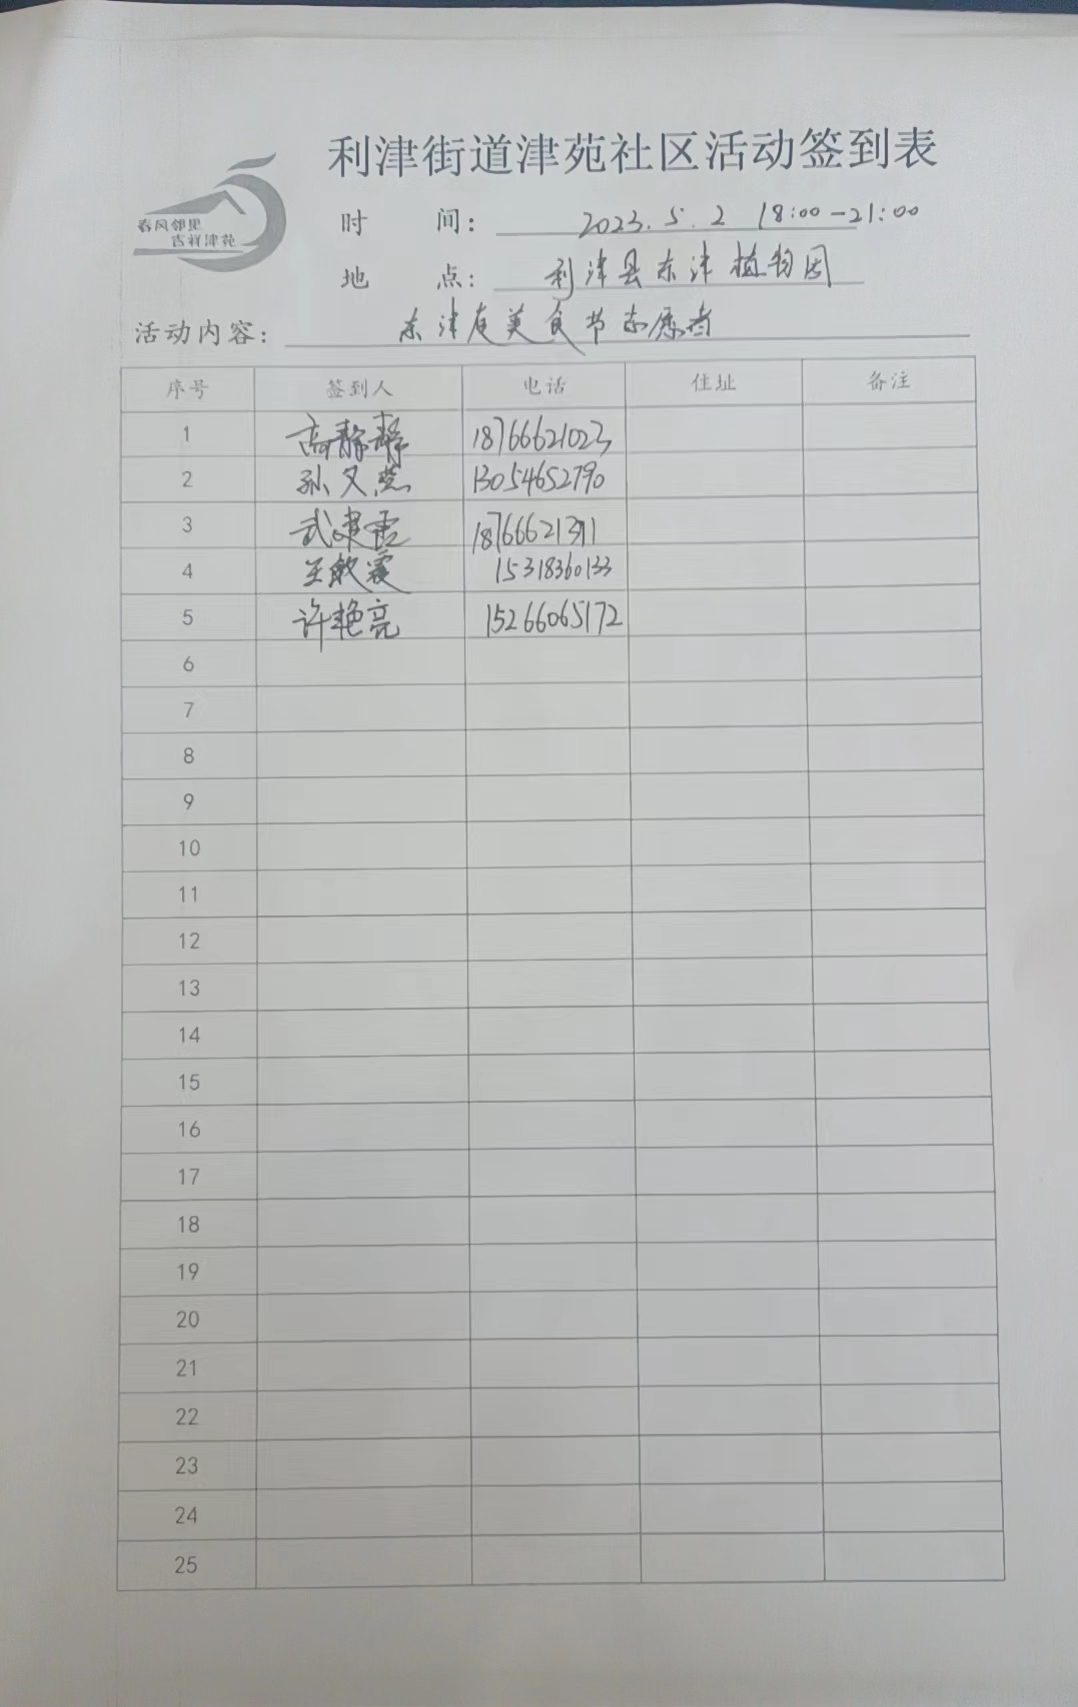 利津街道津苑社区活动签到表
春风邻里
吉祥津苑
时 间: 2023.5.2 18:00-21:00
地 点: 利津县东津植物园
活动内容: 东津夜美食节志愿者
序号 签到人 电话 住址 备注
1 高静静 18766621023
2 孙又燕 13054652790
3 武建霞 18766621311
4 王敏霞 15318360133
5 许艳亮 15266065172
6
7
8
9
10
11
12
13
14
15
16
17
18
19
20
21
22
23
24
25